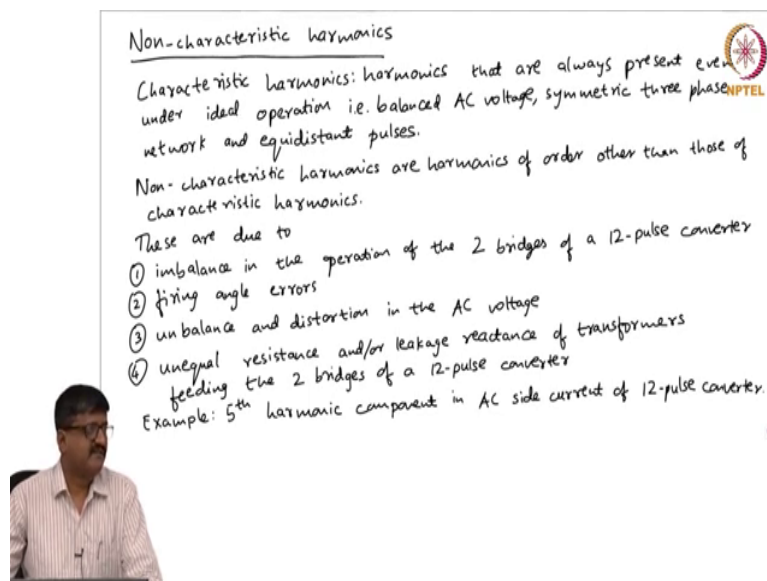 Non-characteristic harmonics
NPTEL
Characteristic harmonics: harmonics that are always present even
under ideal operation i.e. balanced AC voltage, symmetric three phase
network and equidistant pulses.
Non-characteristic harmonics are harmonics of order other than those of
characteristic harmonics.
These are due to
① imbalance in the operation of the 2 bridges of a 12-pulse converter
② firing angle errors
③ unbalance and distortion in the AC voltage
④ unequal resistance and/or leakage reactance of transformers
feeding the 2 bridges of a 12-pulse converter
Example: 5th harmonic component in AC side current of 12-pulse converter.